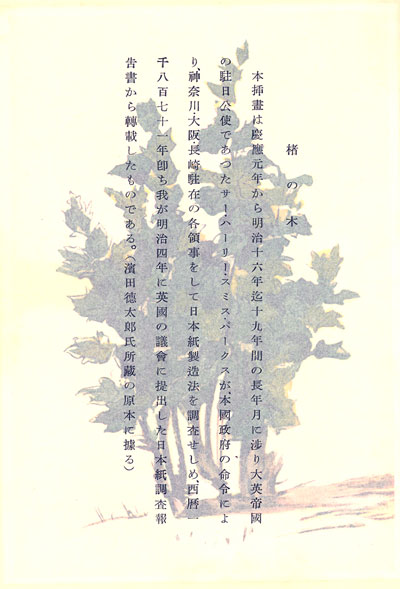 楮の木
本挿畫は慶應元年から明治十六年迄十九年間の長年月に渉り大英帝國
の駐日公使であつたサー・ハーリー・スミス・パークスが、本國政府の命令によ
り、神奈川・大阪・長崎駐在の各領事をして日本紙製造法を調査せしめ、西曆一
千八百七十一年卽ち我が明治四年に英國の議會に提出した日本紙調査報
吿書から轉載したものである。(濱田德太郎氏所藏の原本に據る)